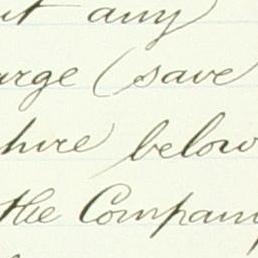 ut any
arge (save
hire below
the Company